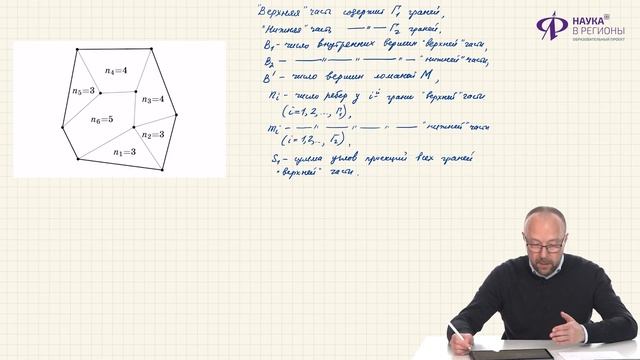 "Верхняя" часть содержит Г₁ граней,
"Нижняя" часть —〃— Г₂ граней,
B₁ - число внутренних вершин "верхней" части,
B₂ - —〃— —〃— —〃— "нижней" части,
B' - число вершин ломаной M,
nᵢ - число рёбер у i-й грани "верхней" части
(i=1,2,..., Г₁),
mᵢ - —〃— —〃— —〃— —〃— "нижней" части
(i=1,2,..., Г₂),
S₁ - сумма углов проекций всех граней
"верхней" части.
n₄=4
n₅=3
n₃=4
n₆=5
n₂=3
n₁=3
НАУКА
В РЕГИОНЫ
ОБРАЗОВАТЕЛЬНЫЙ ПРОЕКТ